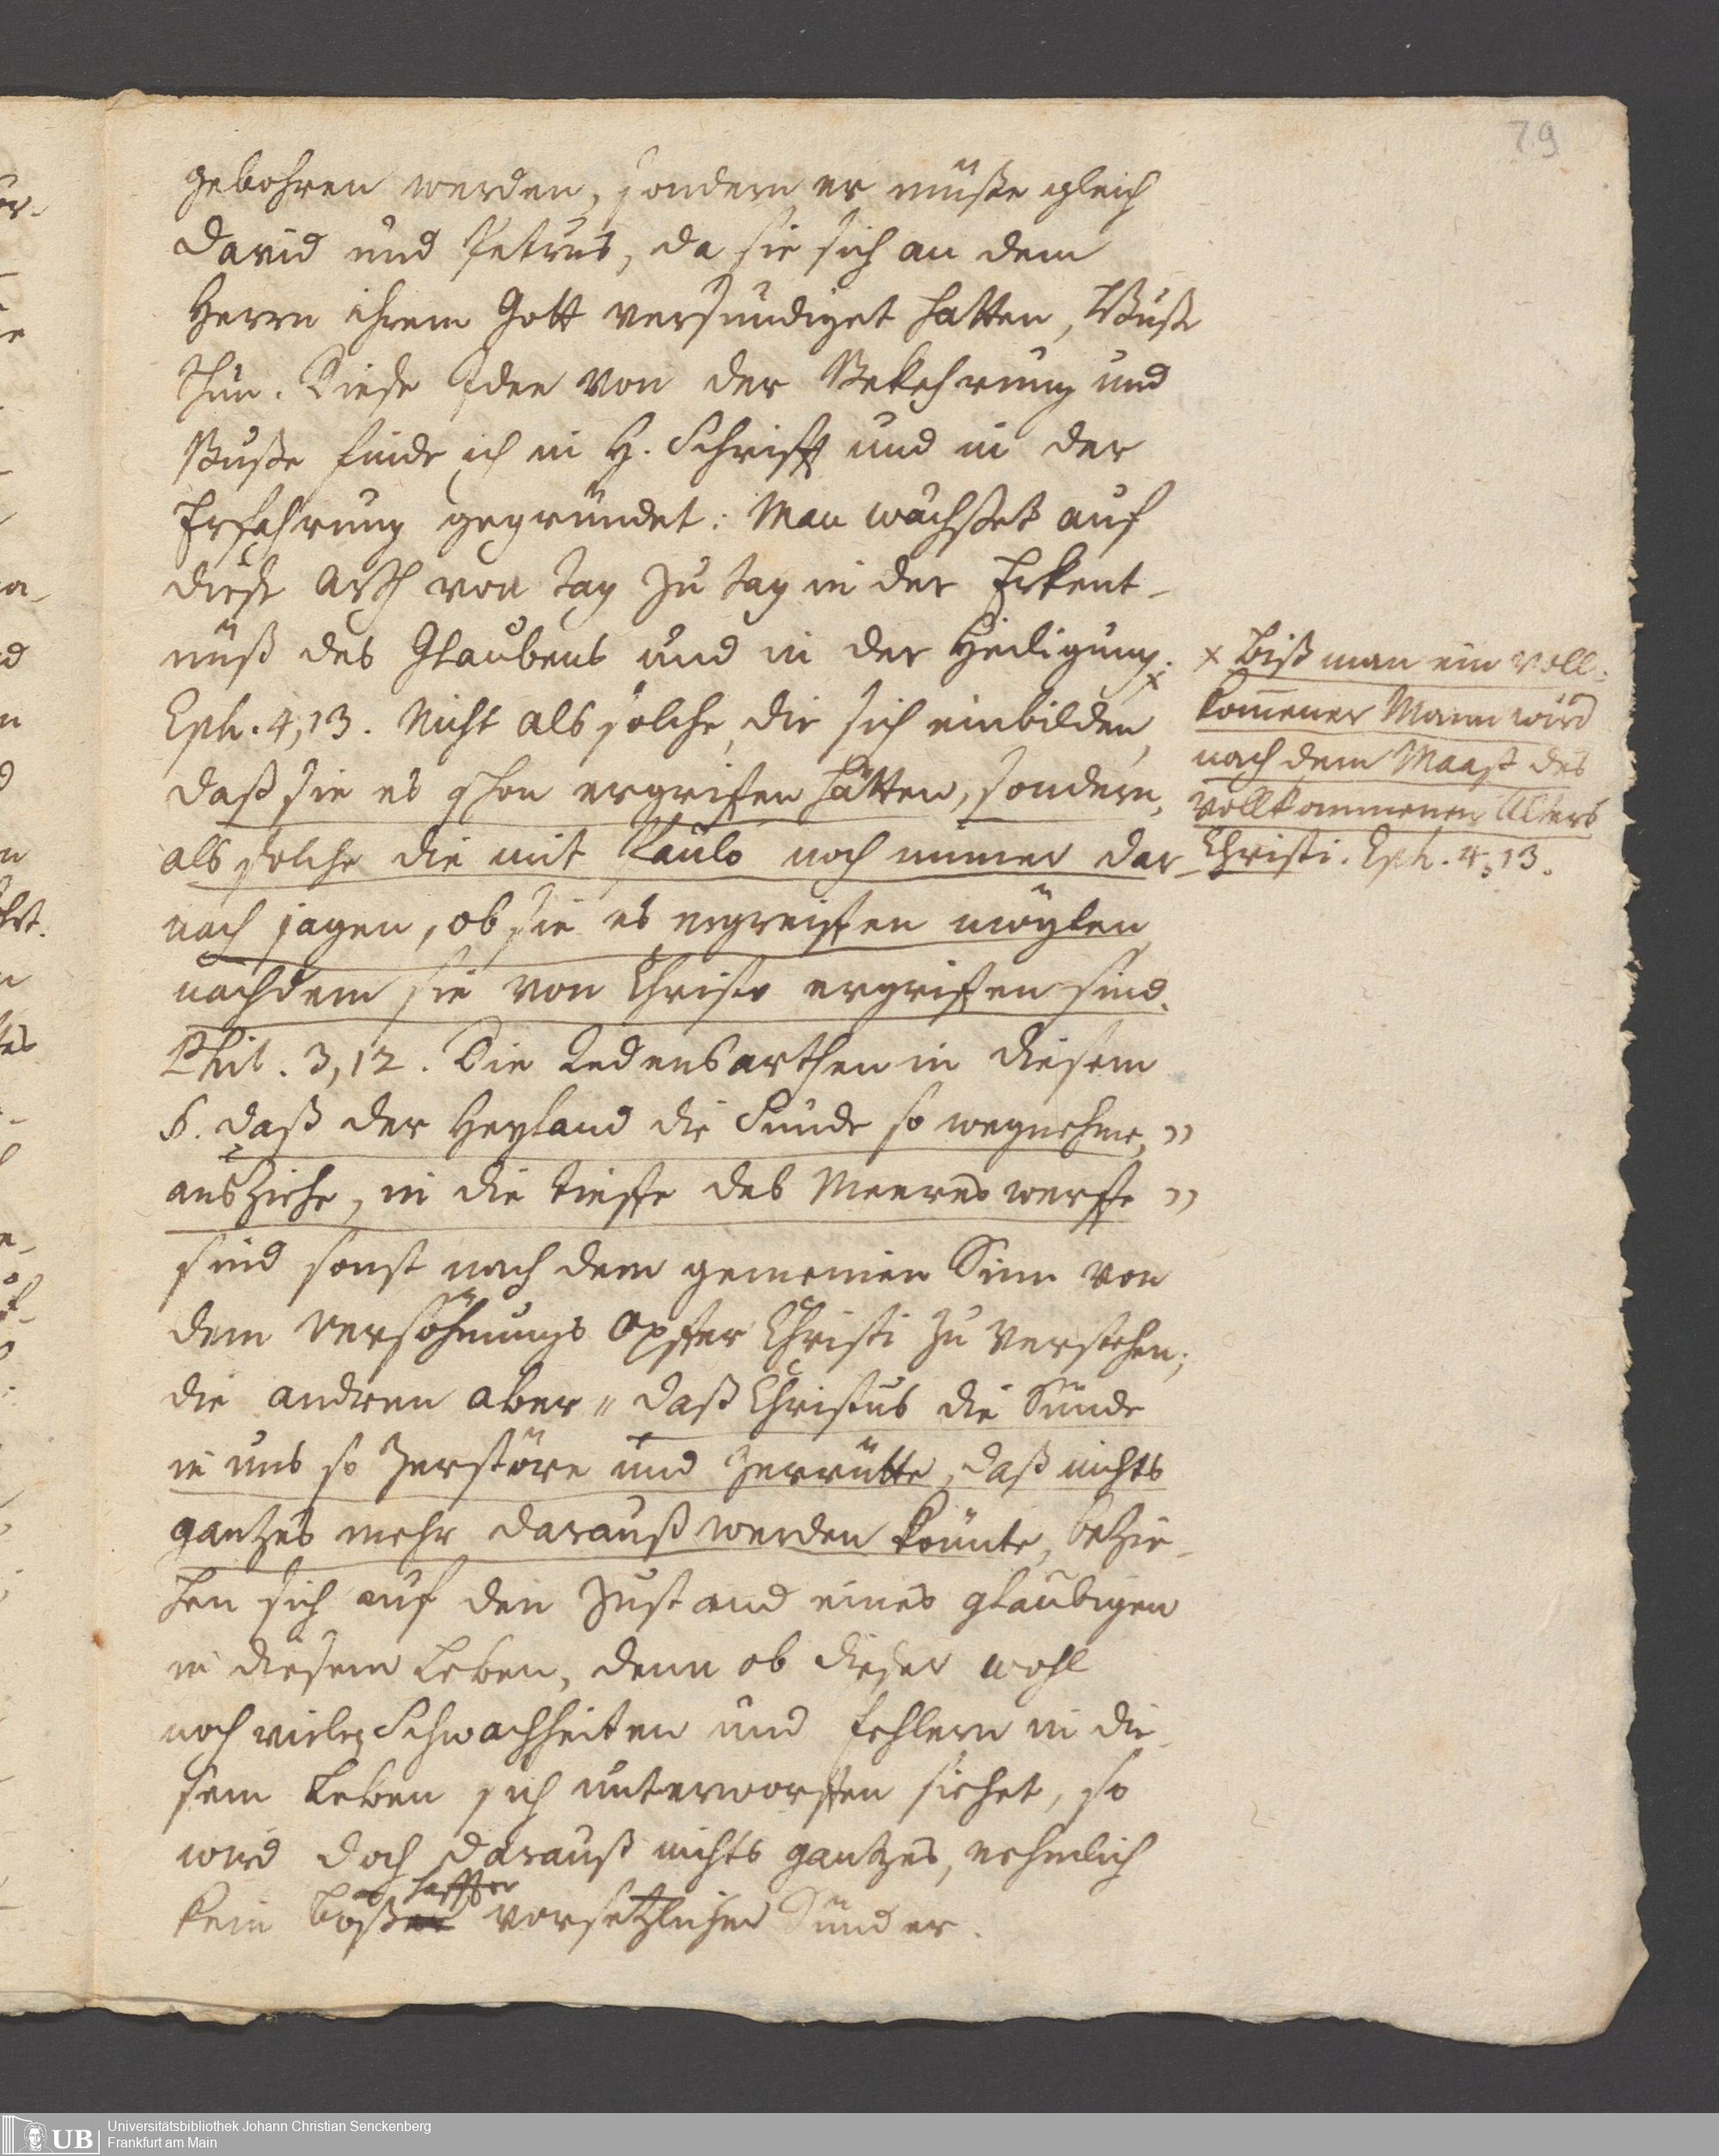 79
gebohren werden, sondern er müße gleich
David und Petrus, da sie sich an dem
Herrn ihrem Gott versündiget hatten, Buße
thun. Diese Idee von der Bekehrung und
Buße finde ich in H. Schrifft und in der
Erfahrung gegründet: Man wächßet auf
diese Arth von Tag zu Tag in der Erkent-
nüß des Glaubens und in der Heiligung. x
Eph. 4,13. Nicht als solche, die sich einbilden,
daß sie es schon ergriffen hätten, sondern,
als solche die mit Paulo noch immer dar-
nach jagen, ob sie es ergreiffen mögten
nachdem sie von Christo ergriffen sind.
Phil. 3,12. Die Redensarthen in diesem
§. daß der Heyland die Sünde so wegnehme, "
ausziehe, in die Tieffe des Meeres werffe "
sind sonst nach dem gemeinen Sinn von
dem Versöhnungs Opffer Christi zu verstehen;
die andren aber " daß Christus die Sünde
in uns so zerstöre und zerrütte, daß nichts
gantzes mehr darauß werden könnte, bezie-
hen sich auf den Zustand eines gläubigen
in diesem Leben, denn ob dieser wohl
noch vielen Schwachheiten und Fehlern in die-
sem Leben sich unterworffen siehet, so
wird doch darauß nichts gantzes, nehmlich
kein boßhaffter vorsetzlicher Sünder.
x Biß man ein voll-
kom̅ener Mann wird
nach dem Maaß des
vollkommenen Alters
Christi. Eph. 4,13.
UB
Universitätsbibliothek Johann Christian Senckenberg
Frankfurt am Main